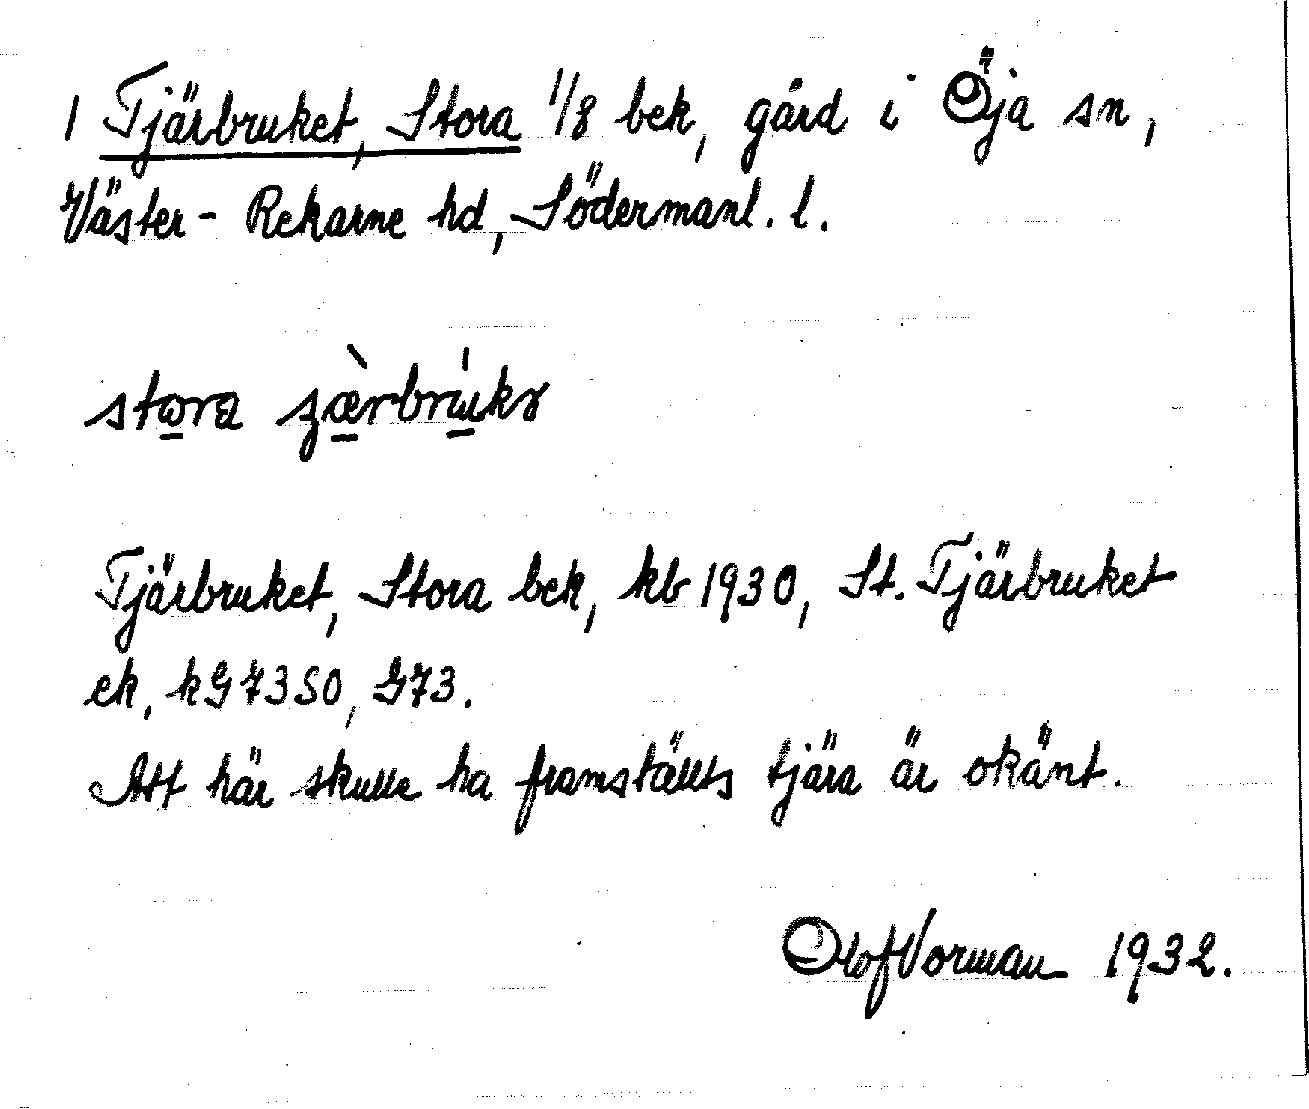 1 Tjärbruket, Stora 1/8 bek, gård i Öja sn,
Väster-Rekarne hd, Södermanl. l.
stora
Tjärbruket, Stora bek, kb 1930, St. Tjärbruket
ek, kG7350, G73.
Att här skulle ha framställts tjära är okänt.
Olof Vorman 1932.